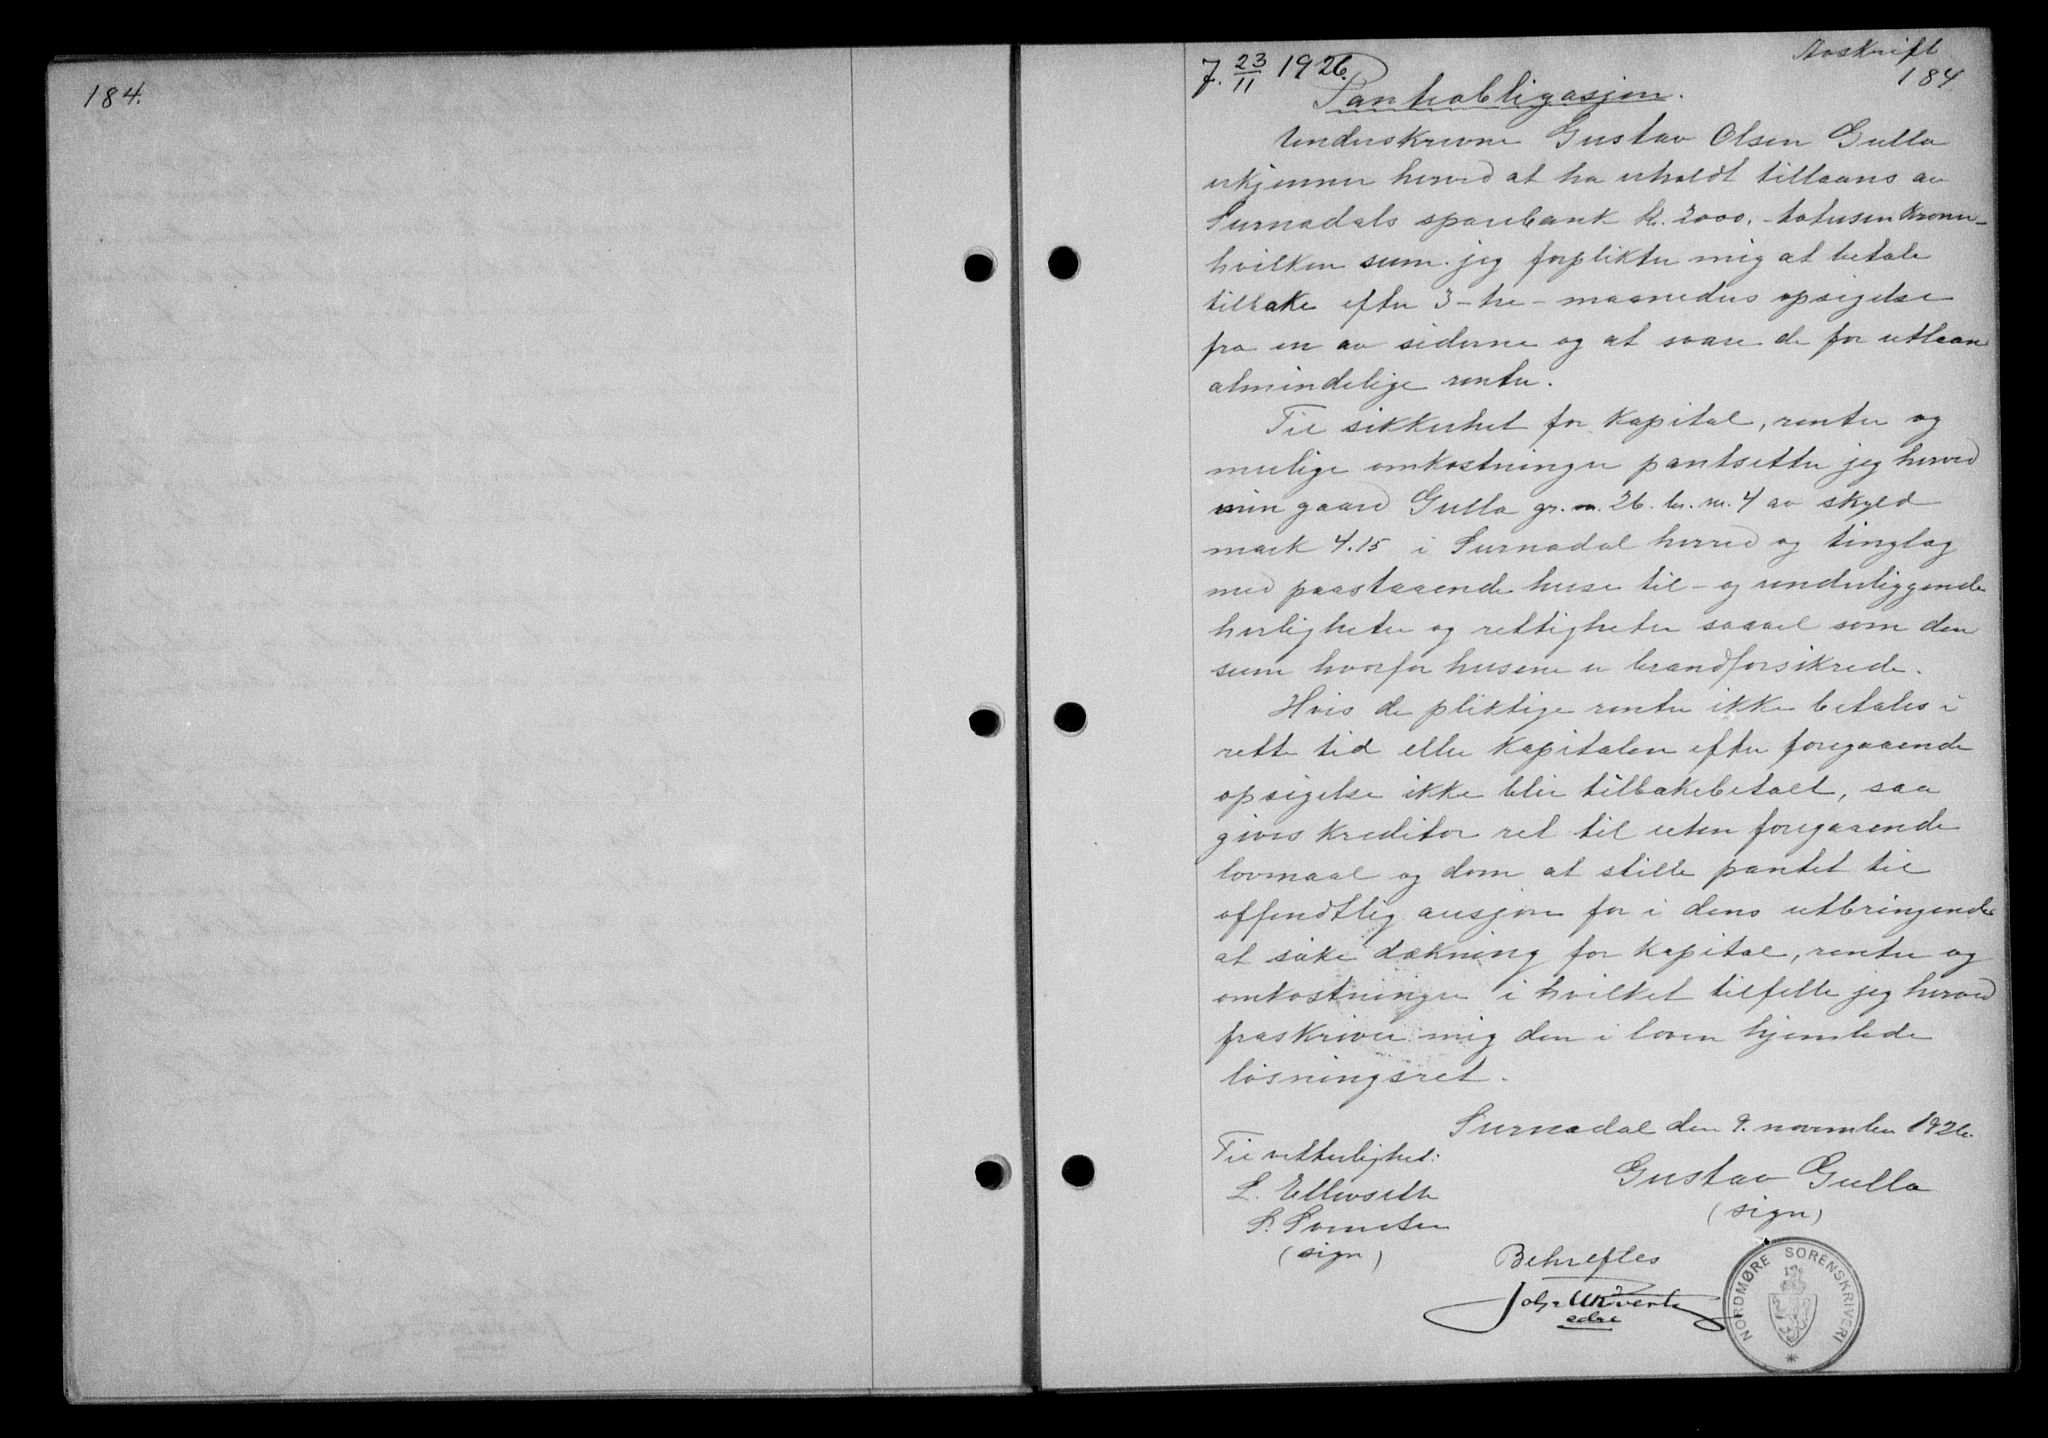 184.
Avskrift
184
T. 23/11 1926.
Pantobligasjon.
Underskrevne Gustav Olsen Gulla
erkjenner herved at ha erholdt tillaans av
Surnadals sparebank kr. 2000. - totusen kroner -
hvilken sum jeg forplikter mig at betale
tilbake efter 3 - tre - maaneders opsigelse
fra en av siderne og at svare de for utlaan
almindelige renter.
Til sikkerhet for kapital, renter og
mulige omkostninger pantsetter jeg herved
min gaard Gulla gr. n. 26. br. nr. 4 av skyld
mark 4.15 i Surnadal herred og tinglag
med paastaaende huse til- og underliggende
herligheter og rettigheter saavel som den
sum hvorfor husene er brandforsikrede.
Hvis de pliktige renter ikke betales i
rette tid eller kapitalen efter foregaaende
opsigelse ikke blir tilbakebetalt, saa
gives kreditor ret til uten foregaaende
lovmaal og dom at stille pantet til
offendtlig ausjon for i dens utbringende
at søke dækning for kapital, renter og
omkostninger i hvilket tilfelle jeg herved
fraskriver mig den i loven hjemlede
løsningsret.
Surnadal den 9. november 1926.
Til vitterlighet:
Gustav Gulla
(sign)
L. Ellevseth
(sign)
Bekreftes
NORDMØRE SORENSKRIVERI